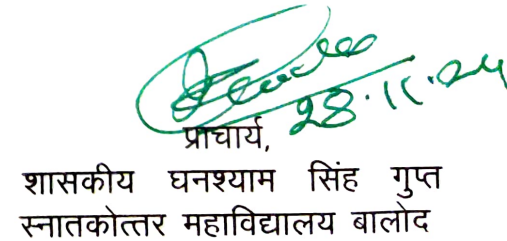 28.11.24
प्राचार्य,
शासकीय घनश्याम सिंह गुप्त
स्नातकोत्तर महाविद्यालय बालोद